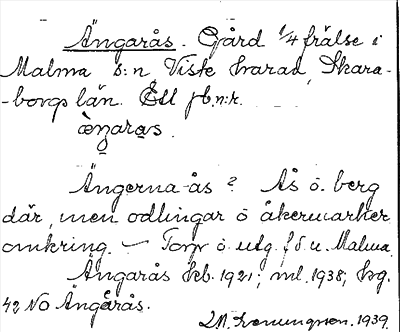 Ängarås. Gård 1/4 frälse i
Malma s:n Viste härad, Skara-
-borgs län. Ett jb.n:r.
Ängerna-ås? Ås o. berg
där, men odlingar o åkermarker
omkring. — Torp o. utg. f d. u. Malma.
Ängarås keb. 1921; ml. 1938; hg.
42 NO Ängårås.
1939.